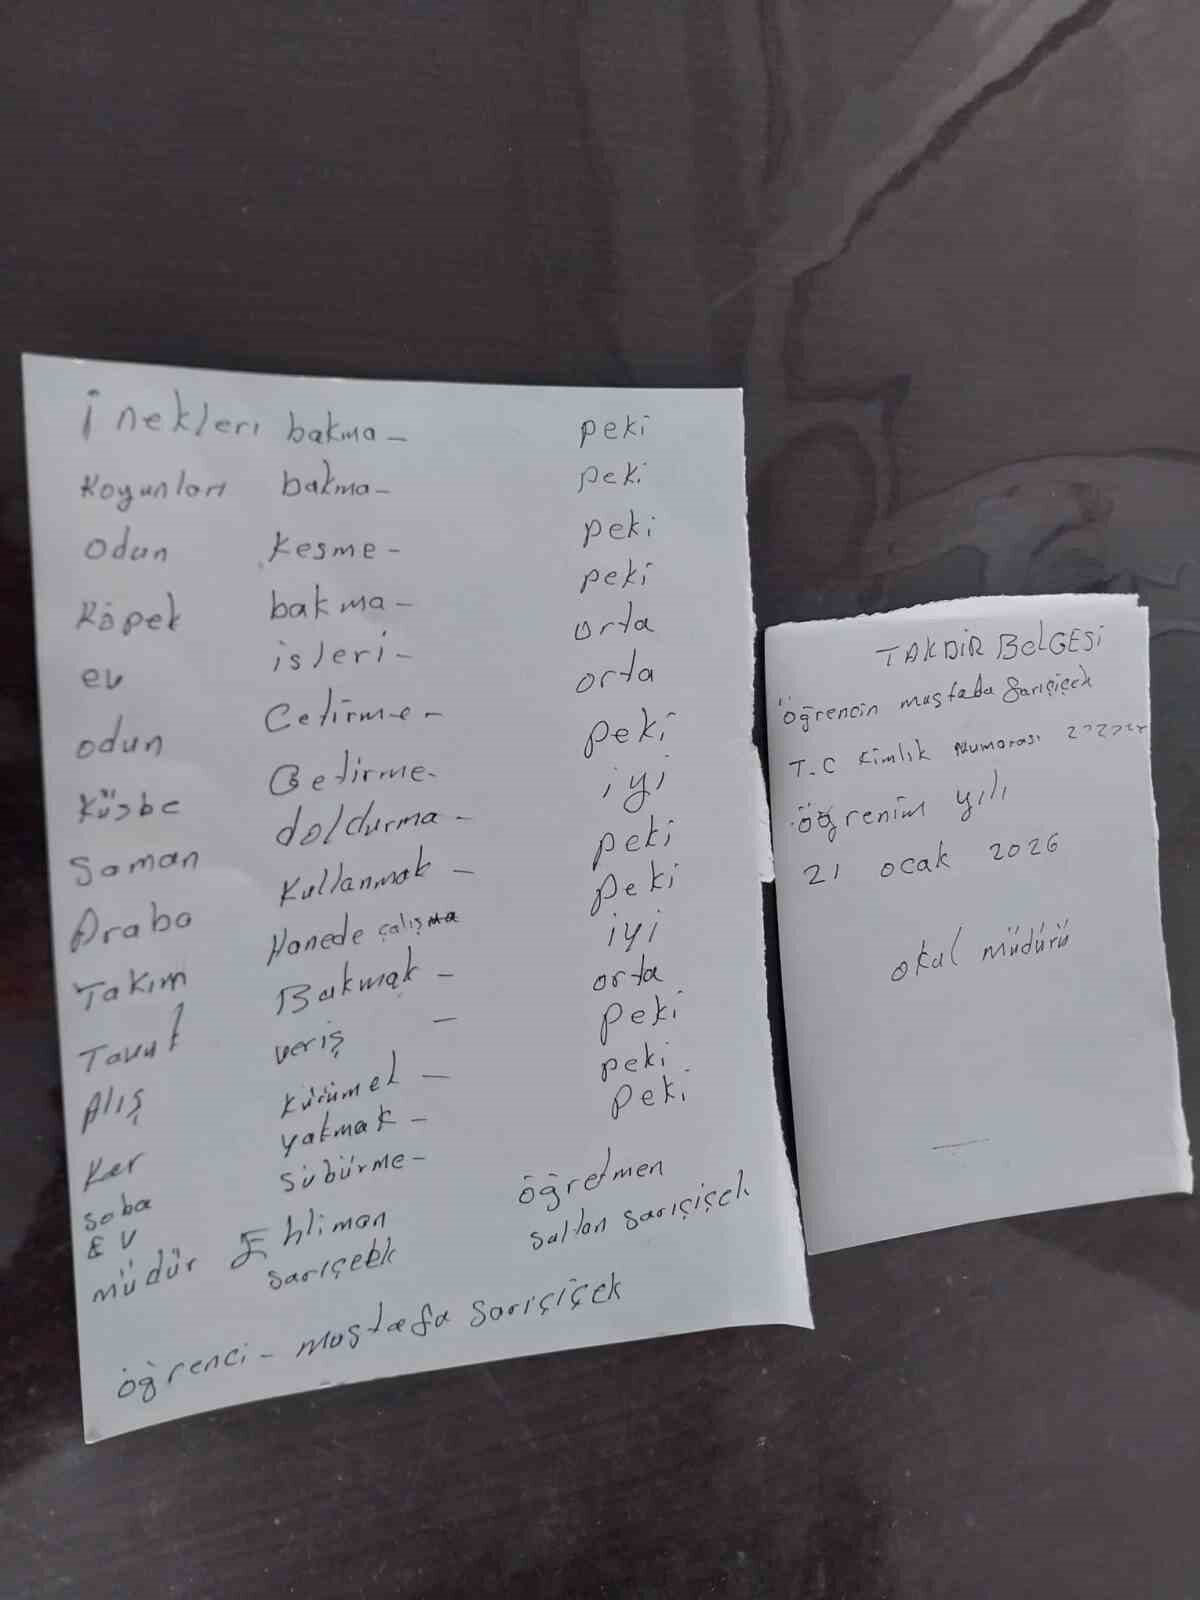 İnekleri bakma - peki
Koyunları bakma - peki
odun Kesme - peki
Köpek bakma - peki
ev isleri - orta
odun Cetirme - orta
Küsbe Getirme - peki
Saman doldurma - iyi
Araba Kullanmak - peki
Takım Hanede çalışma peki
Tavuk Bakmak - iyi
Alış veriş - orta
Kar Kürümek - peki
soba yakmak - peki
EV Sübürme - peki
müdür Ehliman öğretmen
sarıçeek sultan sarıçiçek
öğrenci - mustafa sarıçiçek
TAKDİR BELGESİ
Öğrencin mustafa Sarıçiçek
T.C Kimlik Numarası
öğrenim yılı
21 ocak 2026
okul müdürü